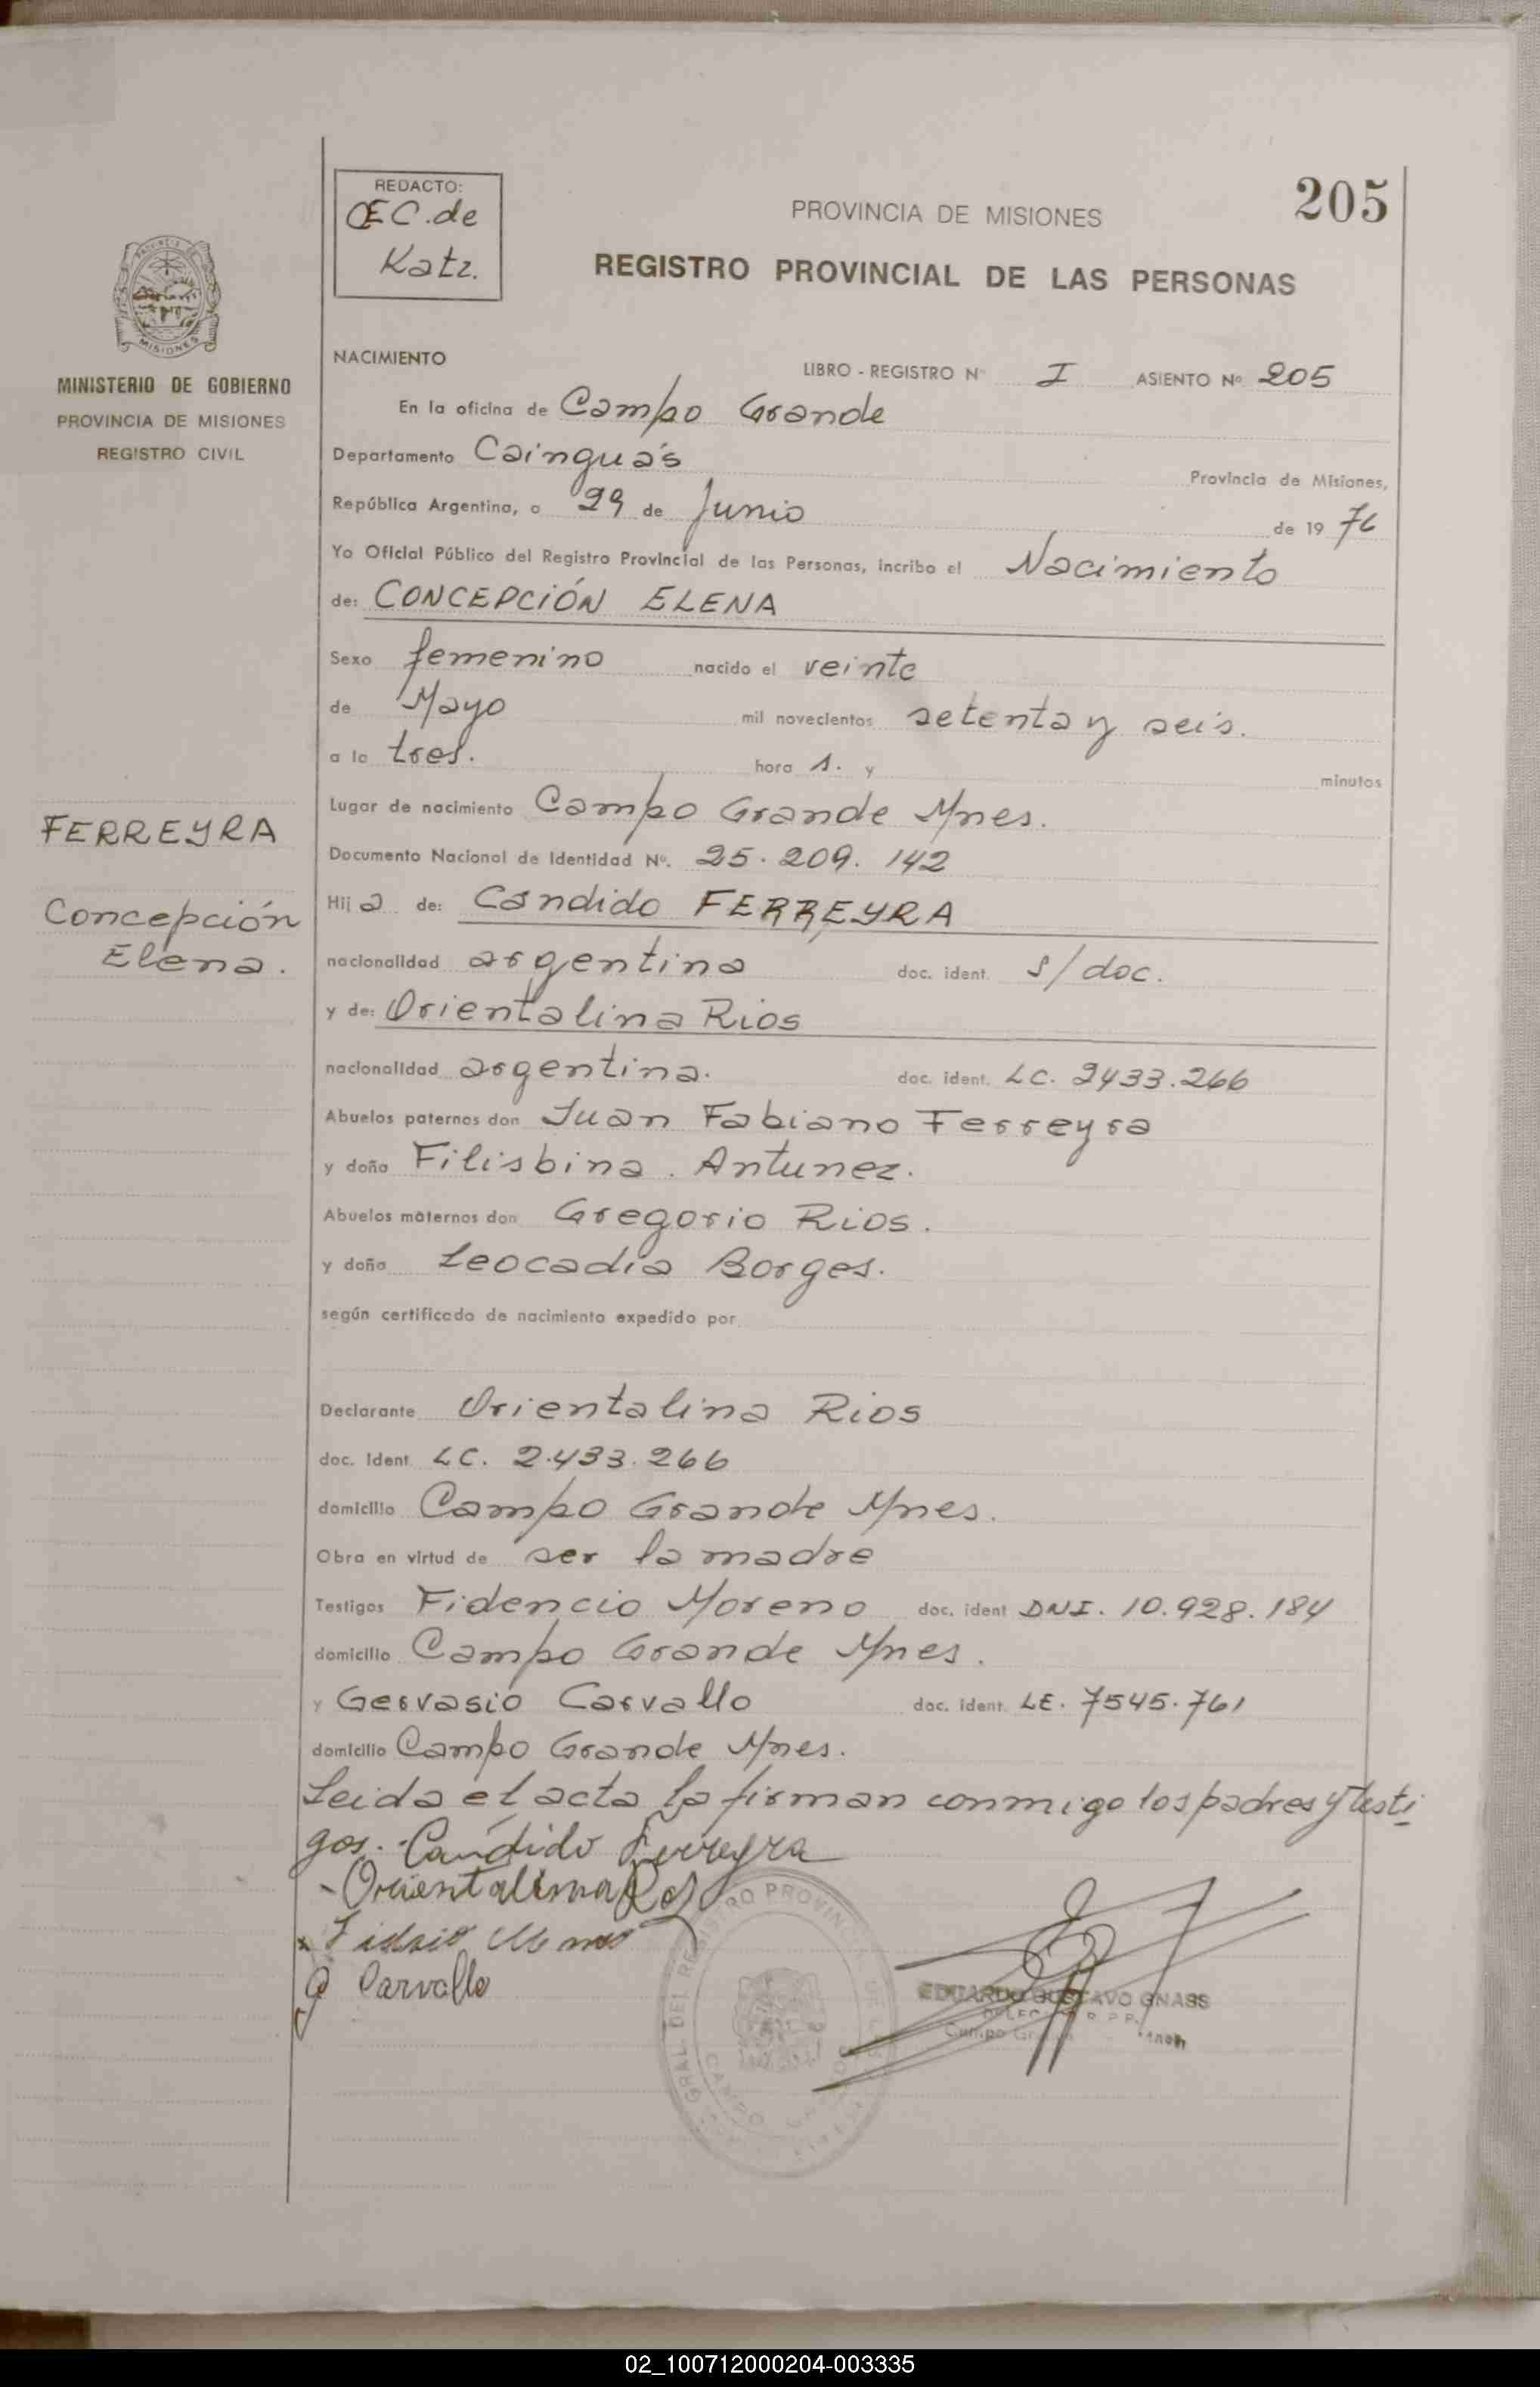 205
REDACTO:
C.E.C. de
Katz.
PROVINCIA DE MISIONES
REGISTRO PROVINCIAL DE LAS PERSONAS
MISIONES
MINISTERIO DE GOBIERNO
PROVINCIA DE MISIONES
REGISTRO CIVIL
NACIMIENTO LIBRO - REGISTRO Nº I ASIENTO Nº 205
En la oficina de Campo Grande
Departamento Cainguás Provincia de Misiones,
República Argentina, a 29 de Junio de 19 76
Yo Oficial Público del Registro Provincial de las Personas, incribo el Nacimiento
de: CONCEPCIÓN ELENA
Sexo femenino nacido el veinte
de Mayo mil novecientos setenta y seis.
a la tres. hora s. y minutos
Lugar de nacimiento Campo Grande Mnes.
Documento Nacional de Identidad Nº. 25.209.142
FERREYRA
Concepción
Elena.
Hij a de: Candido FERREYRA
nacionalidad argentina doc. ident. s/doc.
y de: Orientalina Rios
nacionalidad argentina. doc. ident. LC. 2433.266
Abuelos paternos don Juan Fabiano Ferreyra
y doña Filisbina Antunez.
Abuelos maternos don Gregorio Rios.
y doña Leocadia Borges.
según certificado de nacimiento expedido por
Declarante Orientalina Rios
doc. Ident LC. 2.433.266
domicilio Campo Grande Mnes.
Obra en virtud de ser la madre
Testigos Fidencio Moreno doc. ident DNI. 10.928.184
domicilio Campo Grande Mnes.
y Gervasio Carvallo doc. ident. LE. 7545.761
domicilio Campo Grande Mnes.
Leida el acta la firman conmigo los padres y testi
gos. - Candido Ferreyra
- Orientalina
G Carvallo
EDUARDO GUSTAVO GNASS
02_100712000204-003335